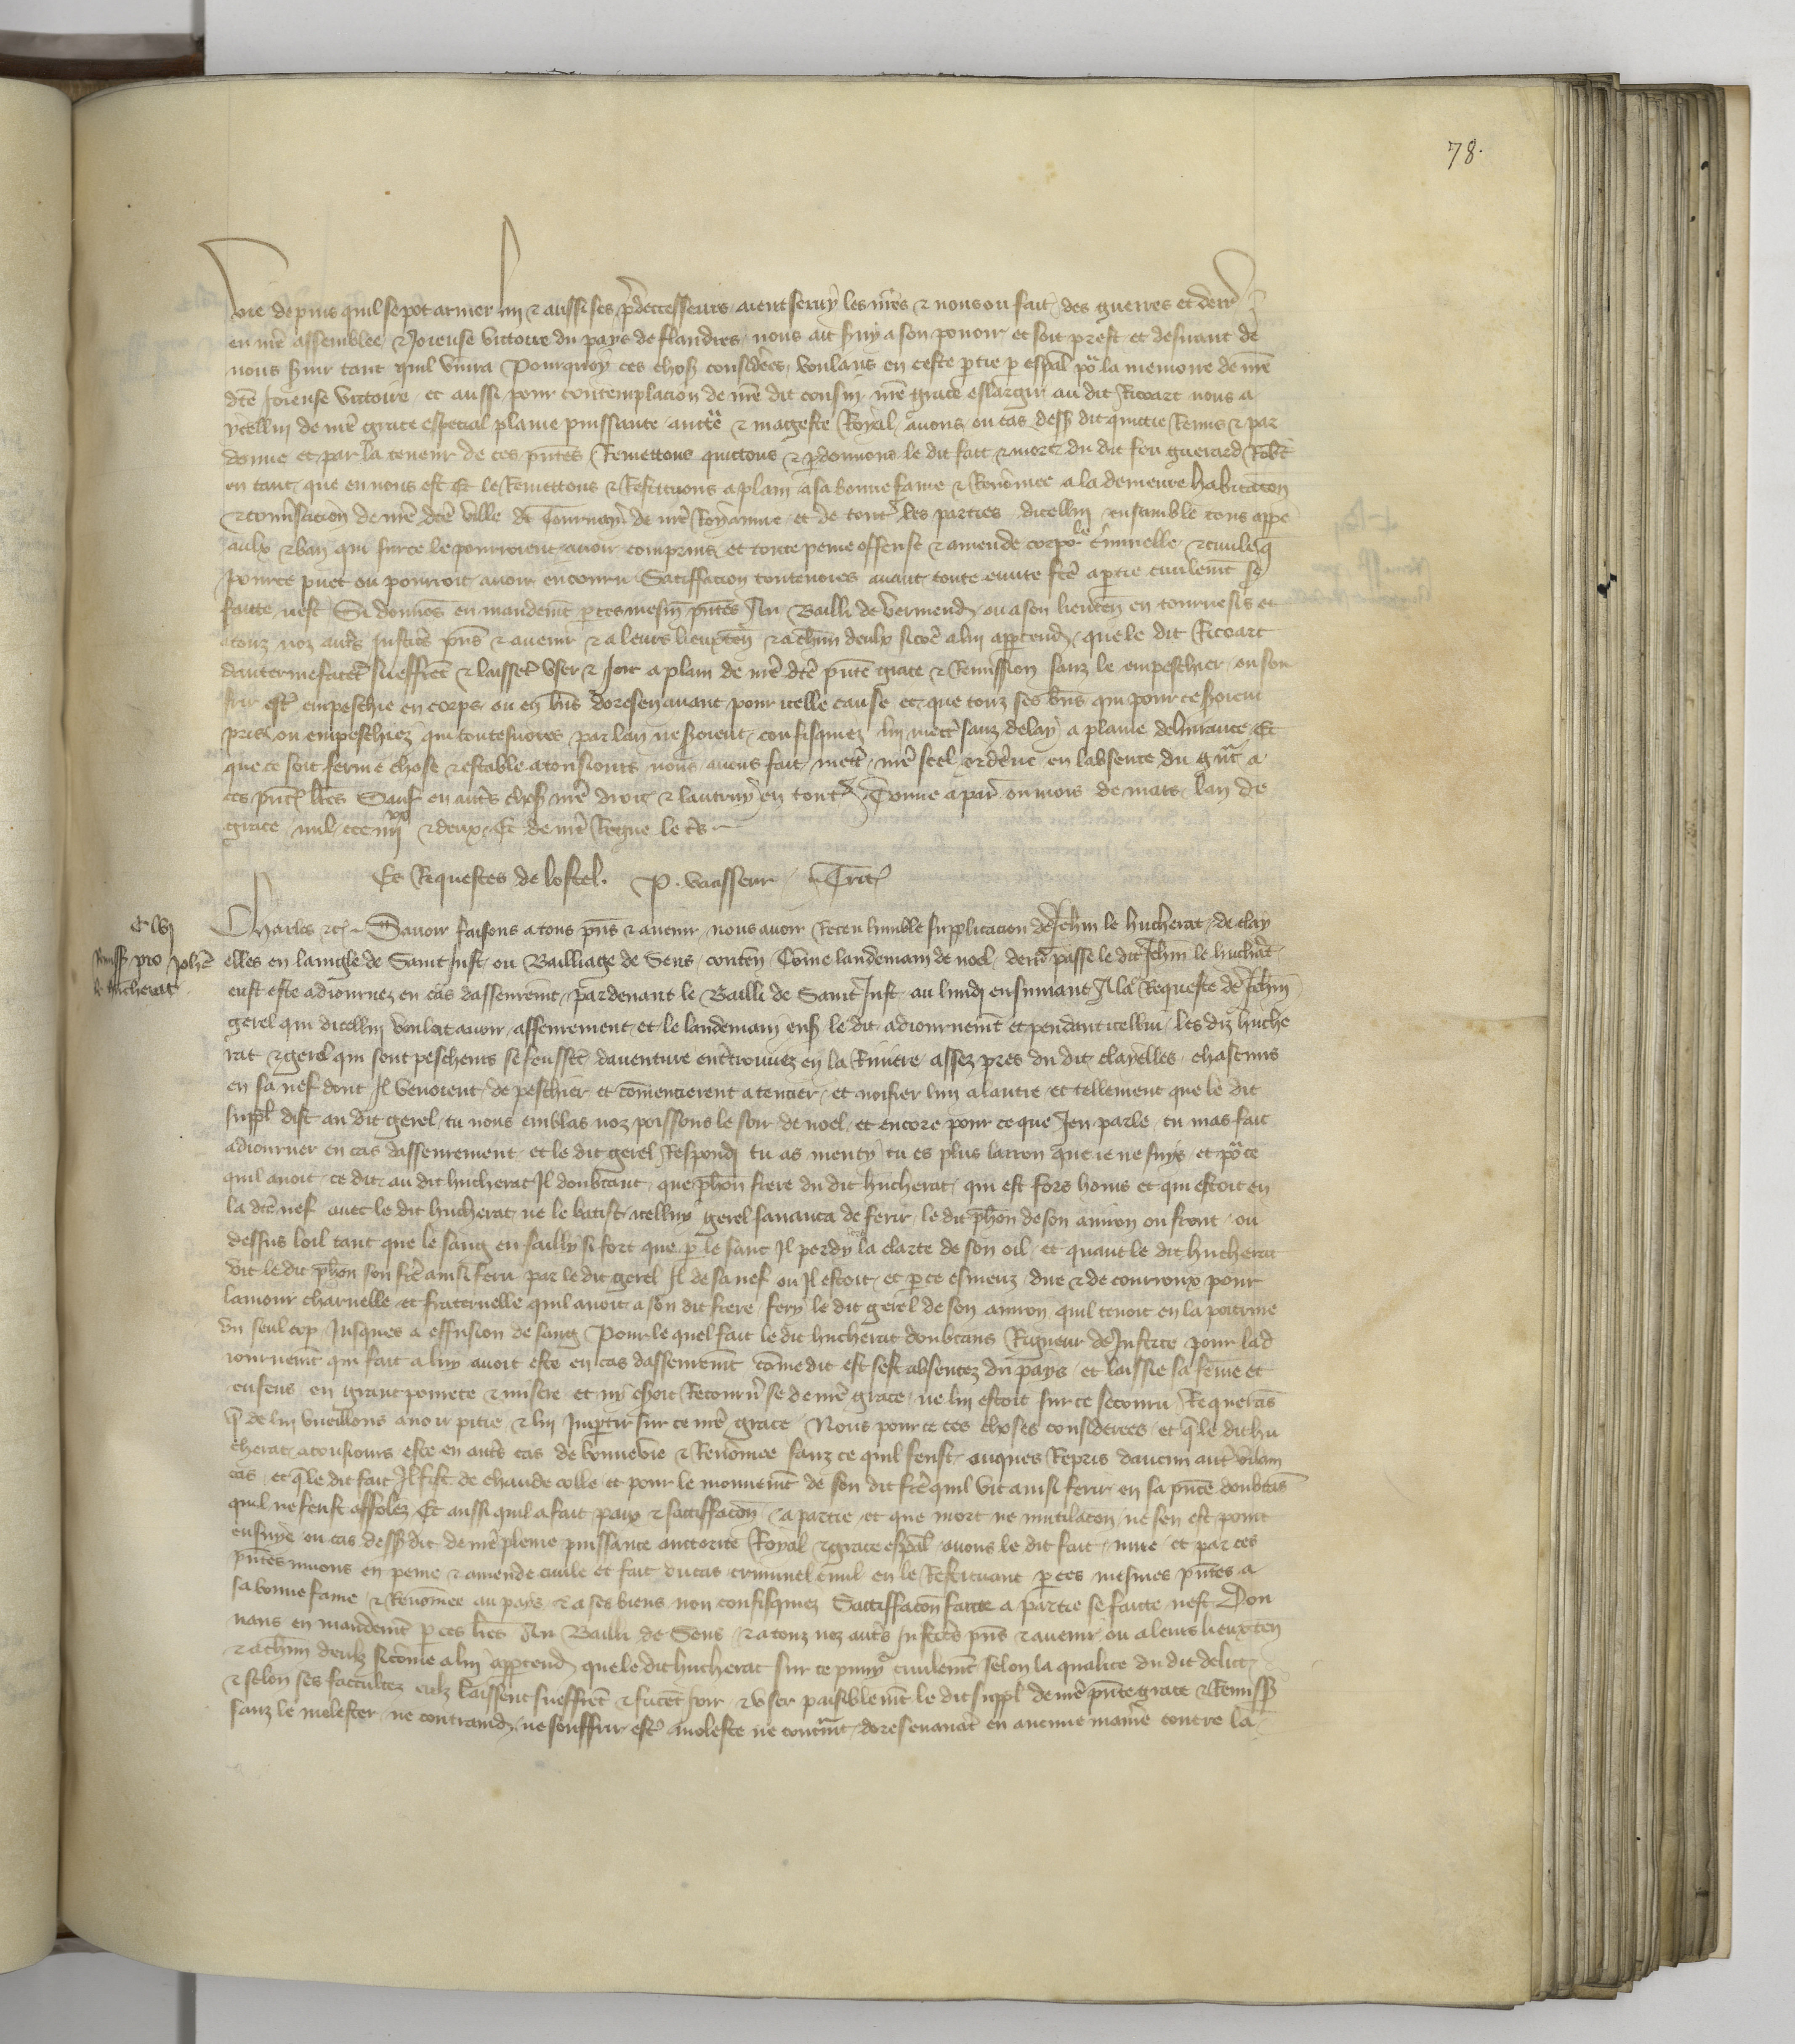 78.
vie depuis quil se pot armer lui & aussi ses p̄decesseurs aient seruy les nr̄es & nous ou fait des guerres et derr̄
en nr̄e assemblee & Joieuse victoire du pays de flandres nous ait s̄uy a son pouoir et soit prest et desirant de
nous s̄uir tant quil viura Pourquoy ces chos̄ considerees voulans en ceste p̄tie p especial po᷑ la memoire de nr̄e
dcē Joieuse victoire et aussi pour contemplacion de nr̄e dit cousin nr̄e grace eslargir au dit Ricoart nous a
ycellui de nr̄e grace especial plaine puissance auctē & mageste Royal auons ou cas dess᷑ dit quictie Remis & par
donne et par la teneur de ces pn̄tes Remettons quictons & p̄donnons le dit fait & mort du dit feu guerard Robt̄
en tant que en nous est Et le Remettons & Restituons a plain a sa bonne fame & Renōmee a la demeure habitac̄on
& conūsacion de nr̄e dcē ville de Tournay de nr̄e Royaume et de tout᷑ les parties dicellui ensamble tous appe
aulx & ban qui sur ce le pourroient auoir comprins et toute peine offense & amende corpor̄le c̄iminelle & ciuile q̄
pour ce puet ou pourroit auoir encouru Satiffacion toutes uoies auant toute euure fcē a p̄tie ciuilemt̄ se
faitte nest Si donnōs en mandemt̄ p ces mesm̄ pn̄tes Au Bailli de vermend᷑ ou a son lieuten̄ en tournesis et
a touz noz aut̄s Justic̄s pn̄s & auenir & a leurs lieuxten̄ & a chūn deulx sicōe a lui app̄tend᷑ que le dit Ricoart
facet̄ sueffret̄ & laisset̄ vser & Joir a plain de nr̄e dcē pn̄te grace & Remission sanz le empeschier ou souf
frir estr̄ empeschie en corps ou en bn̄s doresenauant pour icelle cause et que touz ses bn̄s qui pour ce s̄oient
pris ou empeschiez qui toutesuoies par lan ne s̄oient confisquiez lui mett̄ sanz delay a plaine deliurance Et
que ce soit ferme chose & estable a tousiours nous auons fait mett̄ nr̄e seel ordēne en labsence du gn̄t a
ces pn̄tes lr̄es Sauf en aut̄s chos̄ nr̄e droit & lautruy en tout᷑ Donne a par᷑ ou mois de mars lan de
grace mil ccc iiijˣˣ & deux Et de nr̄e Regne le t̄s
Es Requestes de lostel. P. vaasseur Triā
C lvj
Remiss᷑ pro Joh̄e
le hucherat
Charles &c᷑ Sauoir faisons a tous pn̄s & auenir nous auoir Receu humble supplicacion de Jehn̄ le hucherat de clay
elles en langle de Saint Just ou Bailliage de Sens conten̄ Cōme landemain de noel derr̄ passe le dit Jehn̄ le huchat᷑
eust este adiournez en cas dasseuremt̄ pardeuant le Bailli de Saint Just au lundi ensuiuant A la Requeste de Jehn̄
gerel qui dicellui vouloit auoir asseurement et le landemain ens᷑ le dit adiournemt̄ et pendant icellui les diz huche
rat & gerel qui sont pescheurs se feusset̄ dauenture ent̄trouuez en la Riuiere assez pres du dit clayelles chascuns
en sa nef dont Il venoient de peschier et cōmencierent a tencier et noisier lun a lautre et tellement que le dit
suppl̄ dist au dit gerel tu nous emblas noz poissons le soir de noel et encore pour ce que Jen parle tu mas fait
adiourner en cas dasseurement et le dit gerel Respondi tu as menty tu es plus larron que ie ne suys et po᷑ ce
quil auoit ce dit au dit hucherat Il doubtant que ph̄on frere du dit hucherat qui est fors homs et qui estoit en
la dcē nef auec le dit hucherat ne le batist icelluy gerel sauanca de ferir le dit ph̄on de son auiron ou front ou
dessus loil tant que le sang en sailly si fort que p le sanc Il perdy la clarte de son oil et quant le dit hucherat
vit le dit ph̄on son frē ainsi feru par le dit gerel Il de sa nef ou Il estoit et p ce esmeuz dire & de courroux pour
lamour charnelle et fraternelle quil auoit a son dit frere fery le dit gerel de son auiron quil tenoit en la poitrine
vn seul cop Jusques a effusion de sang Pour le quel fait le dit hucherat doubtans Rigueur de Justice pour lad
iournemt̄ qui fait a luy auoit este en cas dasseuremt̄ cōme dit est sest absentez du pays et laissie sa fēme et
enfens en grant pourete & misere et ny oseroit Retourn̄ se de nr̄e grace ne lui estoit sur ce secouru Requerās
q̄ de lui vueillons auoir pitie & lui Jmp̄tir sur ce nr̄e grace Nous pour ce ces choses considerees et q̄ le dit hu
cherat a tousiours este en aut̄s cas de bonne vie & Renōmee sanz ce quil feust onques Repris daucun aut̄ vilain
cas et q̄ le dit fait Il fist de chaude colle et pour le mouuemt̄ de son dit frē quil vit ainsi ferir en sa pn̄ce doubtās
quil ne feust affolez Et aussi quil a fait paix & satiffac̄on a partie et que mort ne mutilac̄on ne sen est point
ensuye ou cas dess᷑ dit de nr̄e pleine puissance auctorite Royal & grace esp̄al auons le dit fait mue et par ces
pn̄tes muons en peine & amende ciuile et fait du cas criminel ciuil en le Restituant p ces mesmes pn̄tes a
sa bonne fame & Renōmee au pays & a ses biens non confisquiez Sattiffac̄on faitte a partie se faitte nest Don
nans en mandemt̄ p ces lr̄es Au Bailli de Sens & a touz noz aut̄s Justic̄s pn̄s & auenir ou a leurs lieuxten̄
& a chūn deulz sicōme a lui app̄tend᷑ que le dit hucherat sur ce puny ciuilemt̄ selon la qualite du dit delict
& selon ses facultez eulz laissent sueffret̄ & facet̄ Joir & vser paisiblemt̄ le dit suppl̄ de nr̄e pn̄te grace & Remiss᷑
sanz le molester ne contraind᷑ ne souffrir estr̄ moleste ne contr̄int doresenauāt en aucune manie᷑ contre la